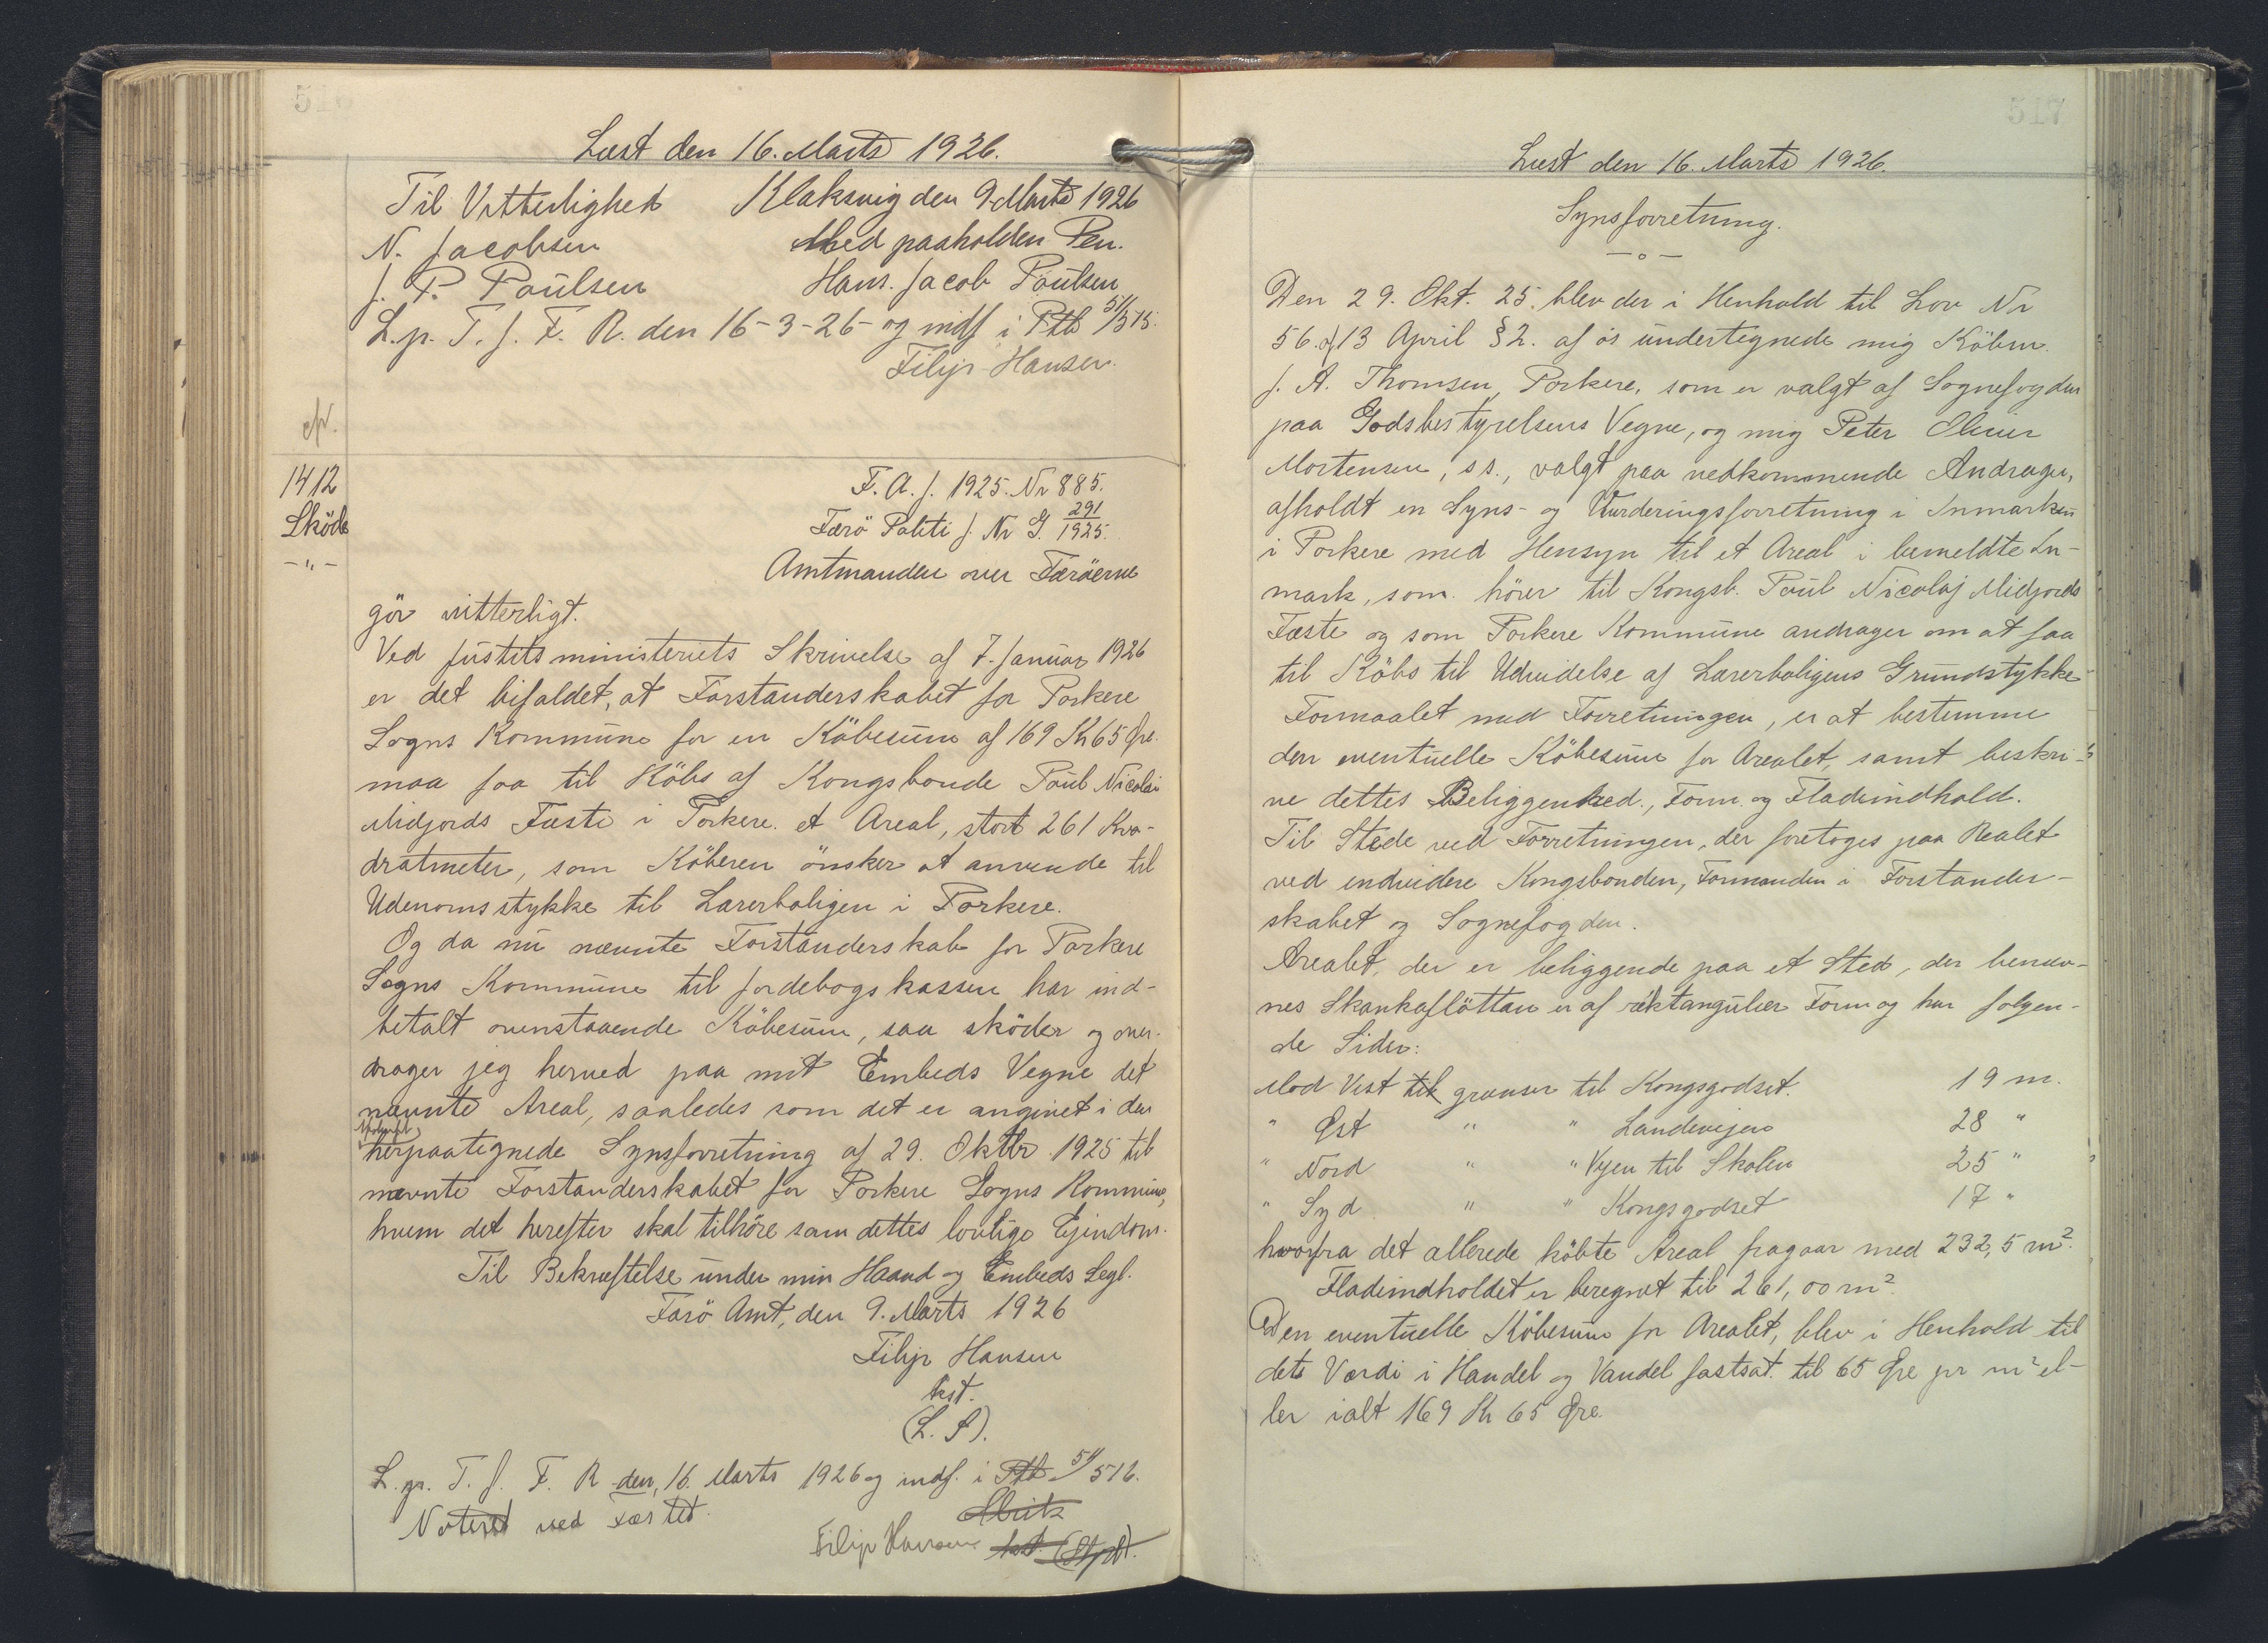 Læst den 16. Marts 1926.
Til Vitterlighed Klaksvig den 9. Marts 1926
N. Jacobsen Med paaholden Pen.
J. P. Poulsen Hans. Jacob Poulsen
L. p. T. f. F. R. den 16-3-26- og indf i Ptb 51/515.
Filip Hansen.
1412
Sköde
-"-
F. A. J. 1925. Nr 885.
Færö Politi J. Nr G. 291/1925.
Amtmanden over Færöerne
gör vitterligt.
Ved Justitsministeriets Skrivelse af 7. Januar 1926
er det bifaldet, at Forstanderskabet for Porkere
Sogns Kommune for en Köbesum af 169 Kr 65 Øre.
maa faa til Köbs af Kongsbonde Poul Nicolai
Midjords Fæste i Porkere. et Areal, stort 261 Kva-
dratmeter, som Köberen önsker at anvende til
Udenomsstykke til Lærerboligen i Porkere.
Og da nu nævnte Forstanderskab for Porkere
Sogns Kommune til Jordebogskassen har ind-
betalt ovenstaaende Köbesum, saa sköder og over-
drager jeg herved paa mit Embeds Vegne det
nævnte Areal, saaledes som det er angivet i den
herpaategnede Synsforretning af 29. Oktbr 1925 til
nævnte Forstanderskabet for Porkere Sogns Kommune,
hvem det herefter skal tilhöre som dettes lovlige Ejendom.
Til Bekræftelse under min Haand og Embeds Segl.
Færö Amt, den 9. Marts 1926
Filip Hansen
kst.
(L. S).
L. p. T. f. F. R den, 16. Marts 1926 og indf. i Ptb 51/516.
Noteret ved Fæstet.
Filip Hansen kst.
Læst den 16. Marts 1926.
Synsforretning.
-o-
Den 29. Okt. 25. blev der i Henhold til Lov Nr
56. af 13 April § 2. af os undertegnede mig Köbm.
J. A. Thomsen, Porkere, som er valgt af Sognefogden
paa Godsbestyrelsens Vegne, og mig Peter Oliver
Mortensen, ss., valgt paa vedkommende Andrager,
afholdt en Syns- og Vurderingsforretning i Inmarken
i Porkere med Hensyn til et Areal i bemeldte In-
mark, som hörer til Kongsb. Poul Nicolaj Midjords
Fæste og som Porkere Kommune andrager om at faa
til Köbs til Udvidelse af Lærerboligens Grundstykke
Formaalet med Forretningen, er at bestemme
den eventuelle Köbesum for Arealet, samt beskri-
ve dettes Beliggenhed., Form. og Fladeindhold.
Til Stede ved Forretningen, der foretoges paa Realet
ved endvidere Kongsbonden, Formanden i Forstander-
skabet og Sognefogden.
Arealet, der er beliggende paa et Sted, der benæv-
nes Skankaflöttan er af rektangulær Form og har folgen-
de Sider:
Mod Vest til grænser til Kongsgodset. 19 m.
" Øst " " Landevejen 28 "
" Nord " " Vejen til Skolen 25 "
" Syd " " Kongsgodset 17 "
hvorfra det allerede köbte Areal fragaar med 232,5 m².
Fladeindholdet er beregnet til 261,00 m².
Den eventuelle Köbesum for Arealet, blev i Henhold til
dets Værdi i Handel og Vandel fastsat. til 65 Øre pr m² el-
ler ialt 169 Kr 65 Øre.